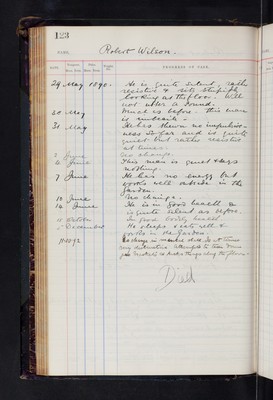 123
NAME, Robert Wilson.
DATE. PROGRESS OF CASE.
29 May 1890. He is quite silent, rather
resistive & sits stupidly
looking at the floor. Will
not utter a sound.
30 May Much as before. This man
is
31 May He has shewn no impulsive-
ness so far and is quite
quiet but rather resistive
at times.
2 June No change.
June This man is quiet & says
nothing.
7 June He has no energy but
works well outside in the
Garden.
10 June No change.
14 June He is in good health &
is quite silent as before.
October In good bodily health.
December He sleeps & eats well &
works in the Garden.
No change in mental state. He at times
very destructive. Attempts to tear down
on the floor
Died